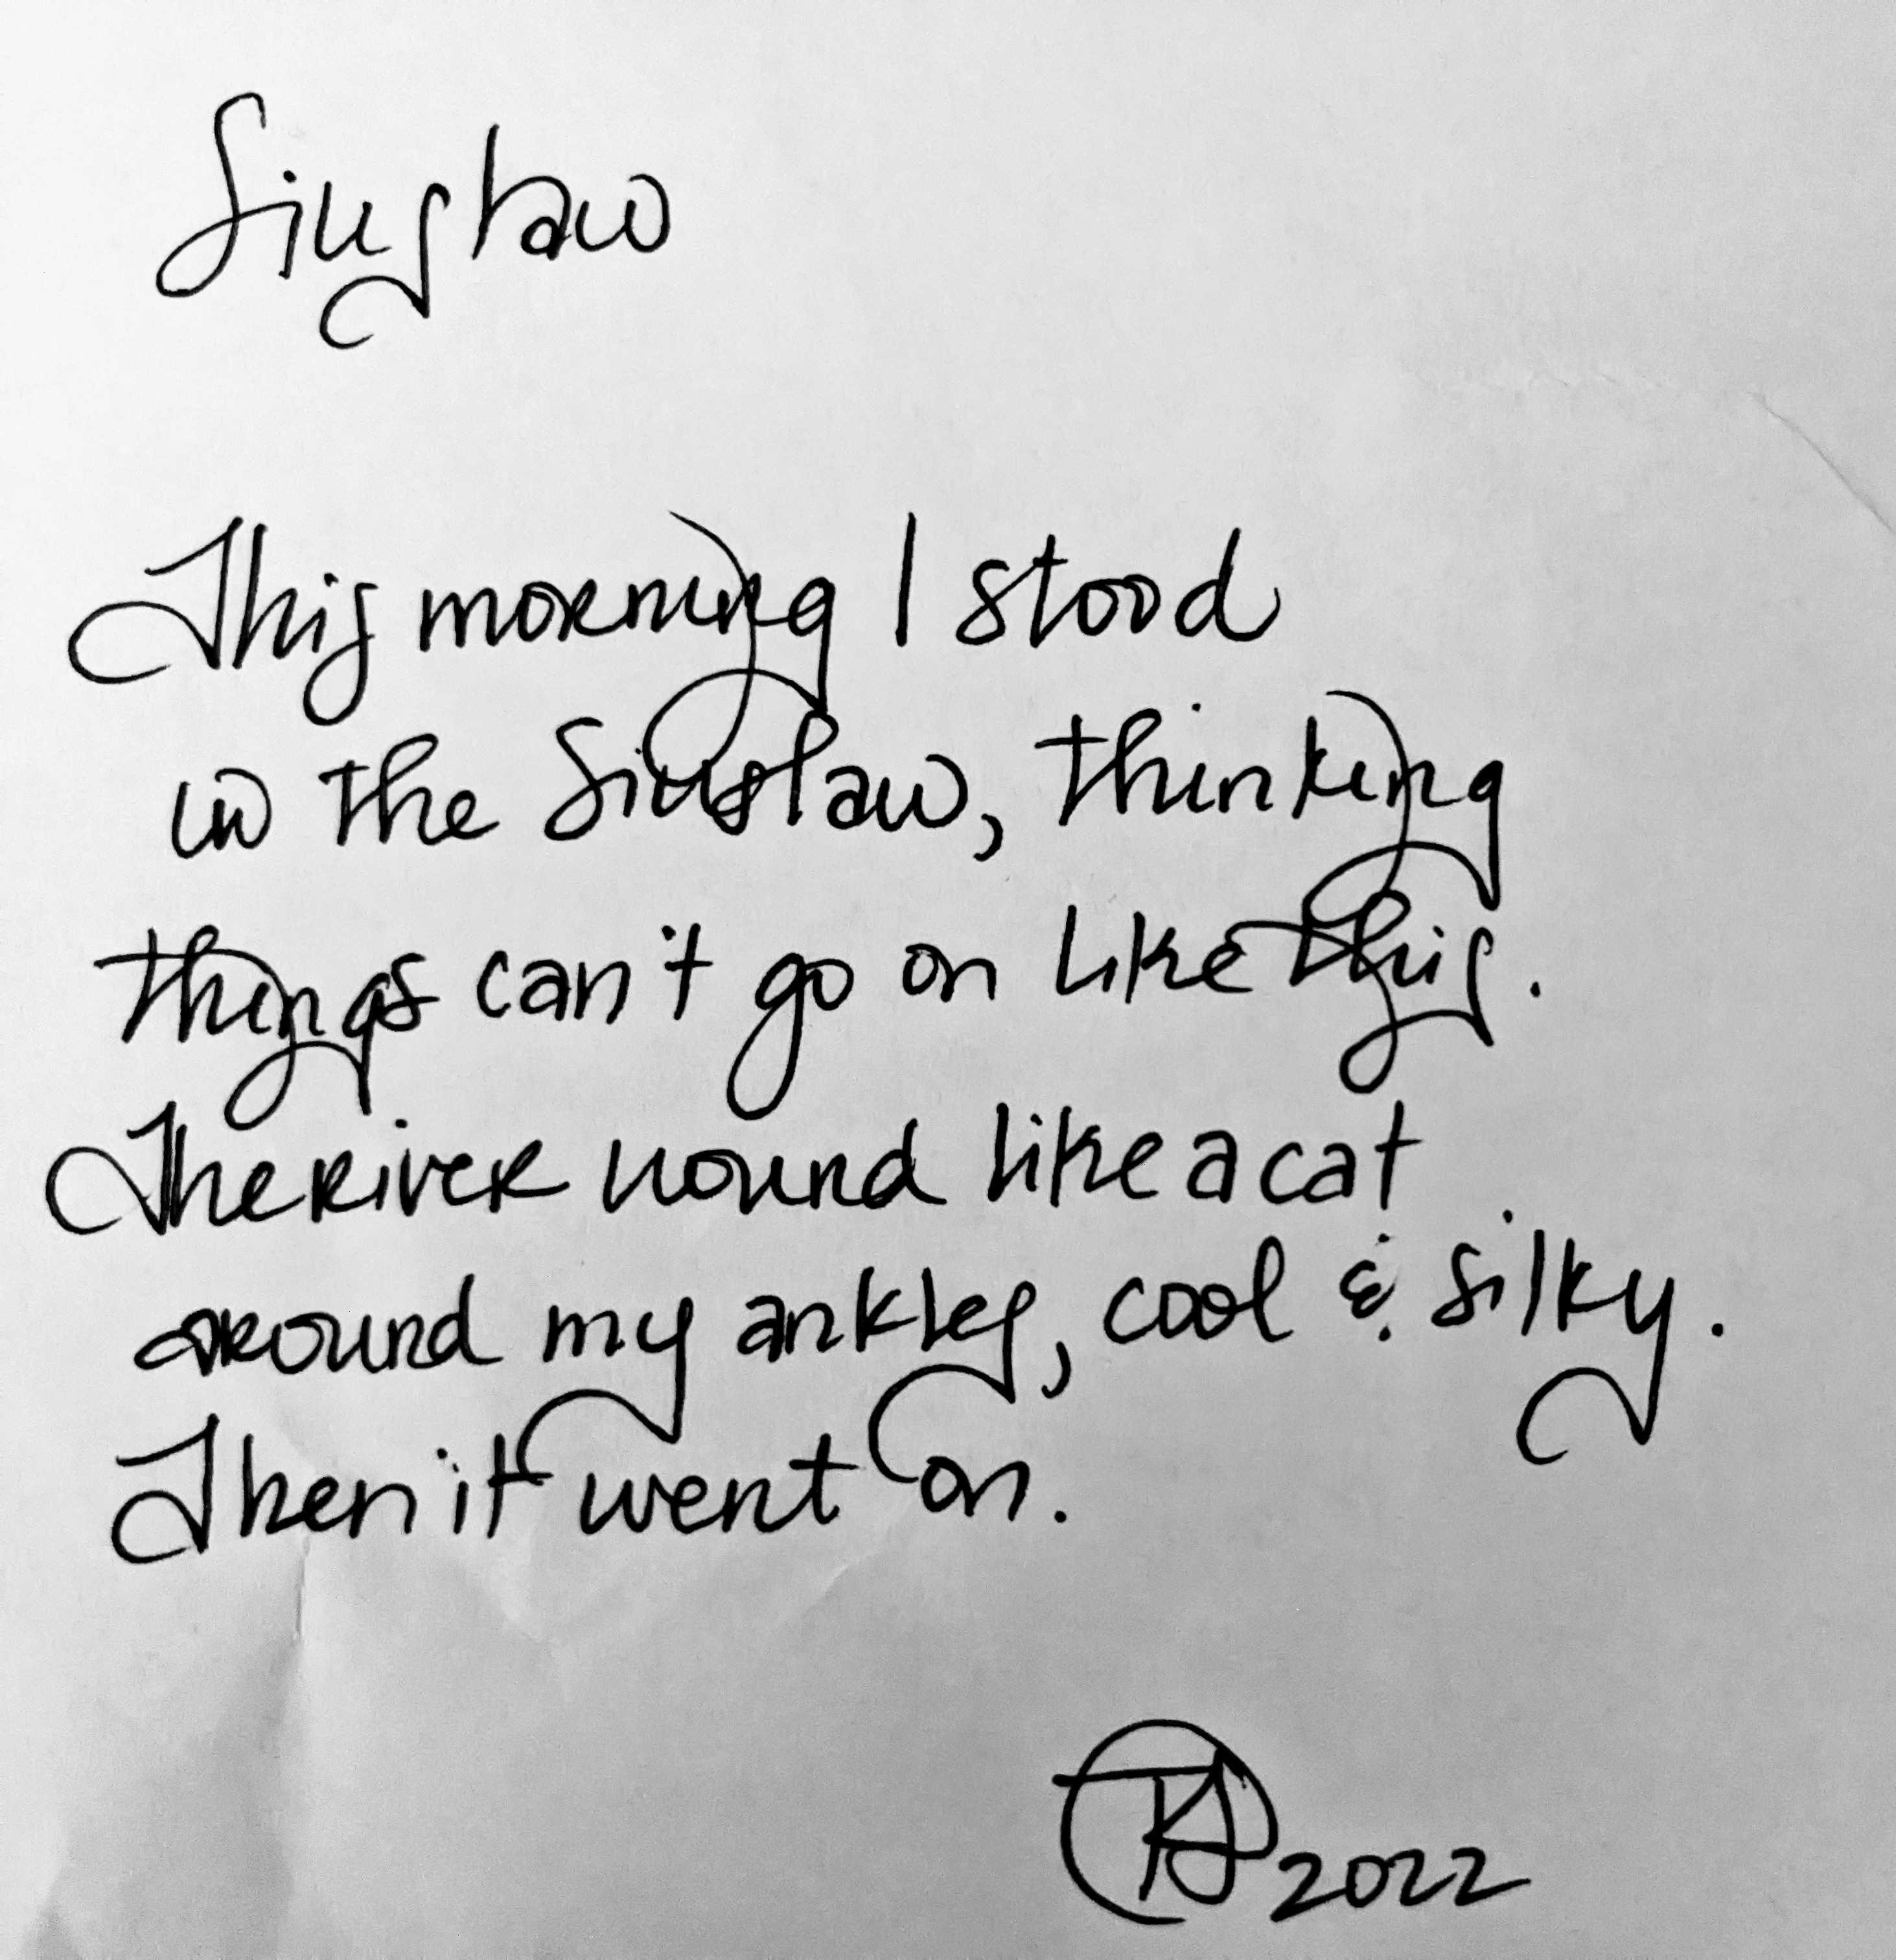 Siuslaw
This morning I stood
in the Siuslaw, thinking
things can't go on like this.
The river wound like a cat
around my ankles, cool & silky.
Then it went on.
2022